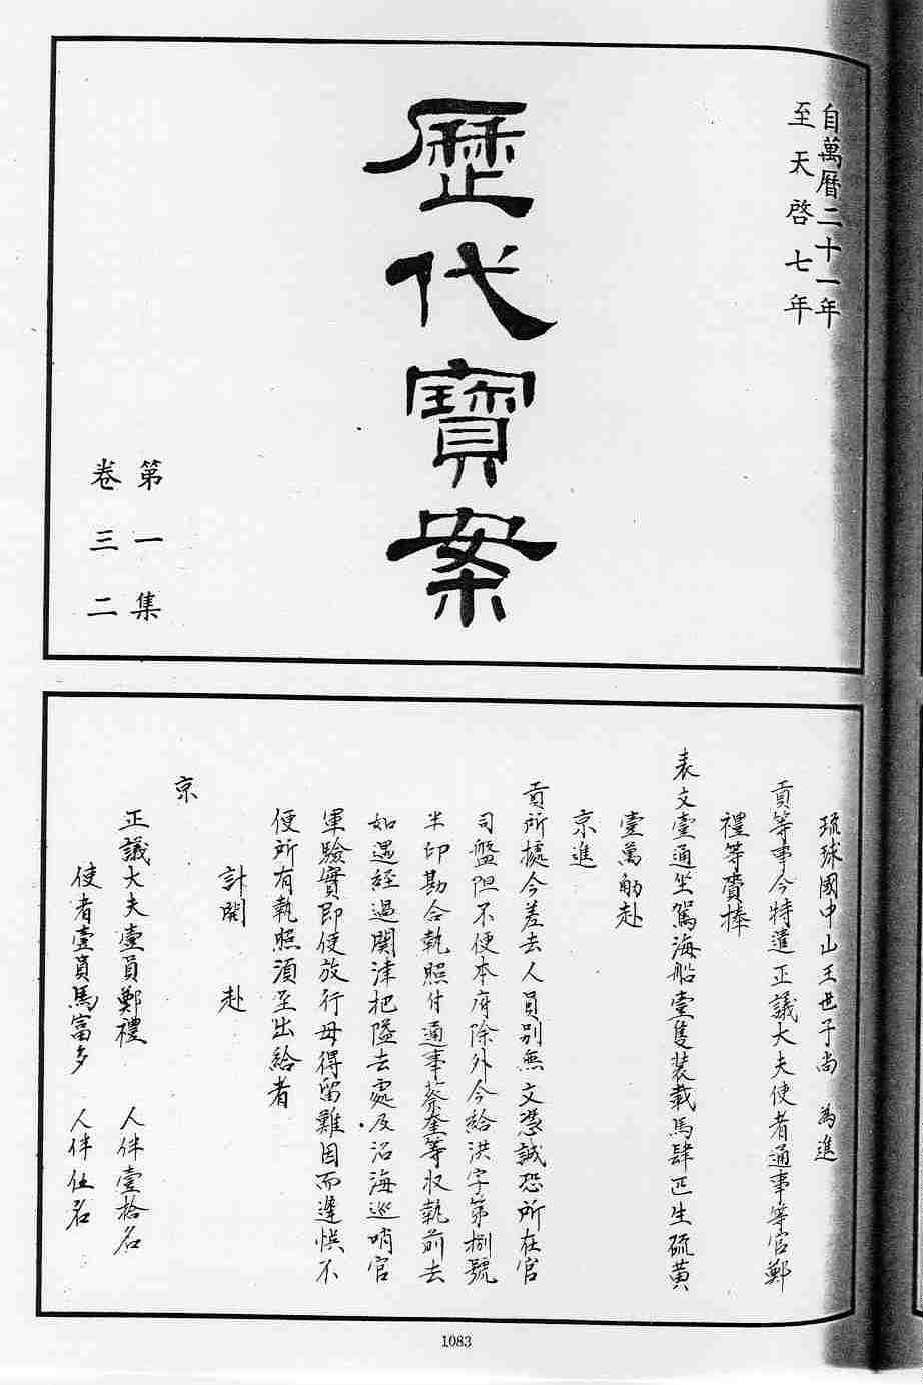 自萬曆二十一年
至天啓七年
歷代寶案
第一集
卷三二
琉球國中山王世子尚　為進
貢等事今特遣正議大夫使者通事等官鄭
禮等賫捧
表文壹通坐駕海船壹隻裝載馬肆匹生硫黃
壹萬觔赴
京進
貢所據今差去人員別無文憑誠恐所在官
司盤阻不便本府除外今給洪字第捌號
半印勘合執照付通事蔡奎等收執前去
如遇經過關津把隘去處及沿海巡哨官
軍驗實即便放行毋得留難因而遲悞不
便所有執照須至出給者
計開　赴
京
正議大夫壹員鄭禮　人伴壹拾名
使者壹員馬富多　人伴伍名
1083